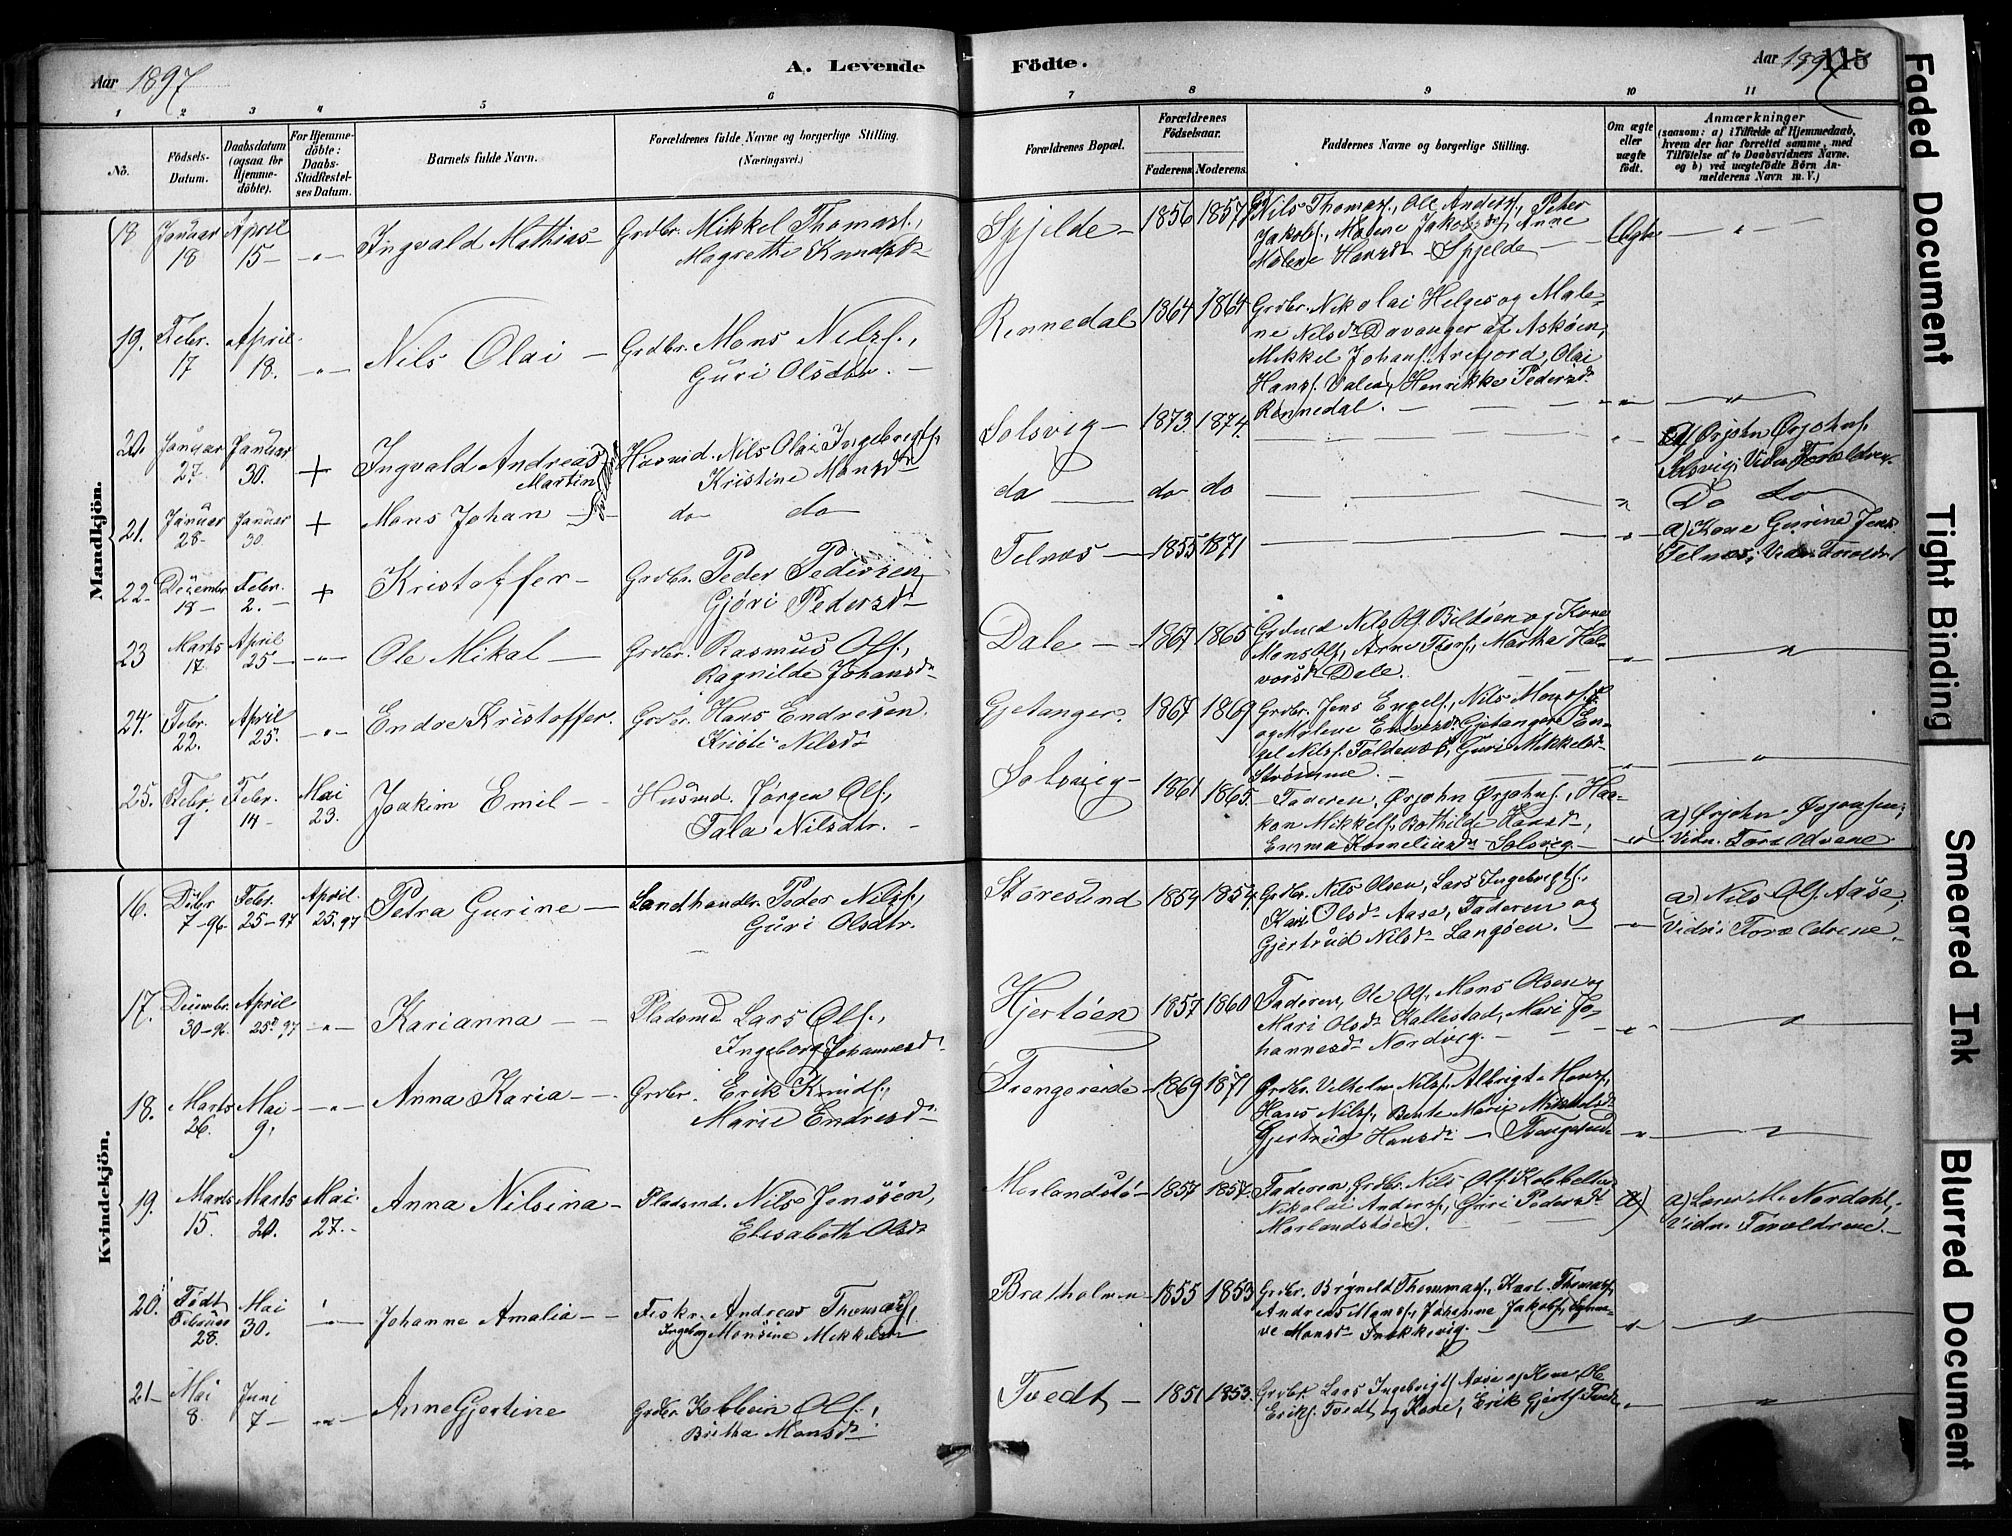 Aar 1897
A. Levende
Födte.
Aar 1897
115
1 2 3 4 5 6 7 8 9 10 11
No.
Födsels-Datum.
Daabsdatum (ogsaa for Hjemme-döbte).
For Hjemme-döbte: Daabs-Stadfestel-ses Datum.
Barnets fulde Navn.
Forældrenes fulde Navne og borgerlige Stilling. (Næringsvei.)
Forældrenes Bopæl.
Forældrenes Födselsaar.
Faderens Moderens
Faddernes Navne og borgerlige Stilling.
Om ægte eller uægte födt.
Anmærkninger
(saasom: a) i Tilfælde af Hjemmedaab, hvem der har forrettet samme, med Tilföielse af to Daabsvidners Navne, og b) ved uægtefödte Börn An-melderens Navn m. V.)
Mandkjön.
18 Januar 18 April 15 - " - Ingvald Mathias - Grdbr. Mikkel Thomass., Magrethe Knudsdr Spjelde - 1856 1857 Nils Thomass., Ole Anders., Peter
Jakobs., Malene Jakobsdr, Anne
Malene Hansdr - Spjelde - Ægte - " -
19. Febr. 17 April 18. - " - Nils Olai - Grdbr. Mons Nilss., Guri Olsdtr. - Rennedal 1864 1864 Grdbr. Nikolai Helges og Male-
ne Nilsdr Davanger af Askøen,
Mikkel Johans. Arefjord, Olai
Hanss. Valen, Henrikke Pedersdr
Rennedal. - " - "
20. Januar 27. Januar 30. + Ingvald Andreas Martin Husmd. Nils Olai Ingebrigts. Kristine Monsdr Solsvig - 1873 1874. - " - a) Ørjohn Ørjohns.
Solsvig; Vidn. Forældren.
21. Januar 28 Januar 30. + Mons Johan - do do do do do " Do do
22 December 18 - Febr. 2. - + Kristoffer - Grdbr. Peder Pedersen, Gjøri Pedersdr - Telnæs - 1855 1871 - " - a) Kone Gurine Jens
Telnæs; Vidn. Foraldr.
23 Marts 17 April 25 - " - Ole Mikal - Grdbr. Rasmus Ols., Ragnilde Johansdr Dale - 1867 1865 Nils Ols. Bildøen og Kone
Mons Ols., Arne Thors., Martha Hal-
vorsdr Dale. "
24. Febr. 22. April 25. - " - Endre Kristoffer. Grdbr. Hans Endresen. Kristi Nilsdr Gjetanger. 1867 1869 Grdbr. Jens Engels., Nils Monss.
og Malene Endresdr Gjetanger, En-
gel Nilss. Foldenæs, Guri Mikkelsdr
Strømme. - "
25. Febr. 9 Febr. 14 - Mai 23. Joakim Emil - Husmd. Jørgen Ols., Tala Nilsdtr. - Solsvig - 1861 1865. - Faderen, Ørjohn Ørjohns., Haa-
kon Mikkels., Bothilde Hansdr,
Emma Korneliusdr Solsvig. - " a) Ørjohn Ørjohnsen;
Vidn. Forældrene
Kvindekjön.
16. Decbr 7 - 96. Febr. 25 - 97 April 25. 97 Petra Gurine - Landhandlr. Peder Nilss., Guri Olsdtr. Storesund 1854 1854. Grdbr. Nils Olsen, Lars Ingebrigts.
Kari Olsdr Aase, Faderen og
Gjertrud Nilsdr Langøen. - " a) Nils Ols. Aase;
Vidn: Forældrene. -
17. Decembr. 30 - 96. April 25 97 - " - Karianna - Pladsmd Lars Ols., Ingeborg Johannesdr Hjertøen 1857 1860 Faderen, Ole Ols., Mons Olsen og
Mari Olsdr Kallestad, Mari Jo-
hannesdr Nordvig. - "
18. Marts 26. Mai 9. - " - Anna Karia - Grdbr. Erik Knuds., Marie Endresdr - Trengereide 1869 1871 Grdbr. Vilhelm Nilss., Albrigt Monss.,
Hans Nilss., Bente Marie Mikkelsdr
Gjertrud Hansdr - "
19. Marts 15. Marts 20. Mai 27. - Anna Nilsina - Pladsmd. Nils Jenssen, Elisabeth Olsdr Morlandstø - 1857 1857. Faderen, Grdbr. Nils Ols. Kobbeltv
Nikolai Anders., Guri Pedersdr
Morlandstøen. a) Lars M. Nordahl,
Vidn. Forældrene. -
20. Født Februar 28. Mai 30. - " - Johanne Amalia - Fiskr. Andreas Thomass. Ingeborg Monsine Mikkelsdr Bratholmen 1855 1853 Grdbr. Brynild Thommass., Karl Thomass.
Andreas Monss., Johanne Jakobs.,
ve Monsdr Snekkevig. - "
21 - Mai 8. Juni 7 - " - Anne Gjertine Grdbr. Kobbein Ols., Britha Monsdr Tvedt - 1851 1853. Grdbr. Lars Ingebrigts. Aase og Kone, Ole
Eriks. Tvedt og Kone, Erik Gjerts. Tvedt "
Faded Document
Tight Binding
Smeared Ink
Blurred Document